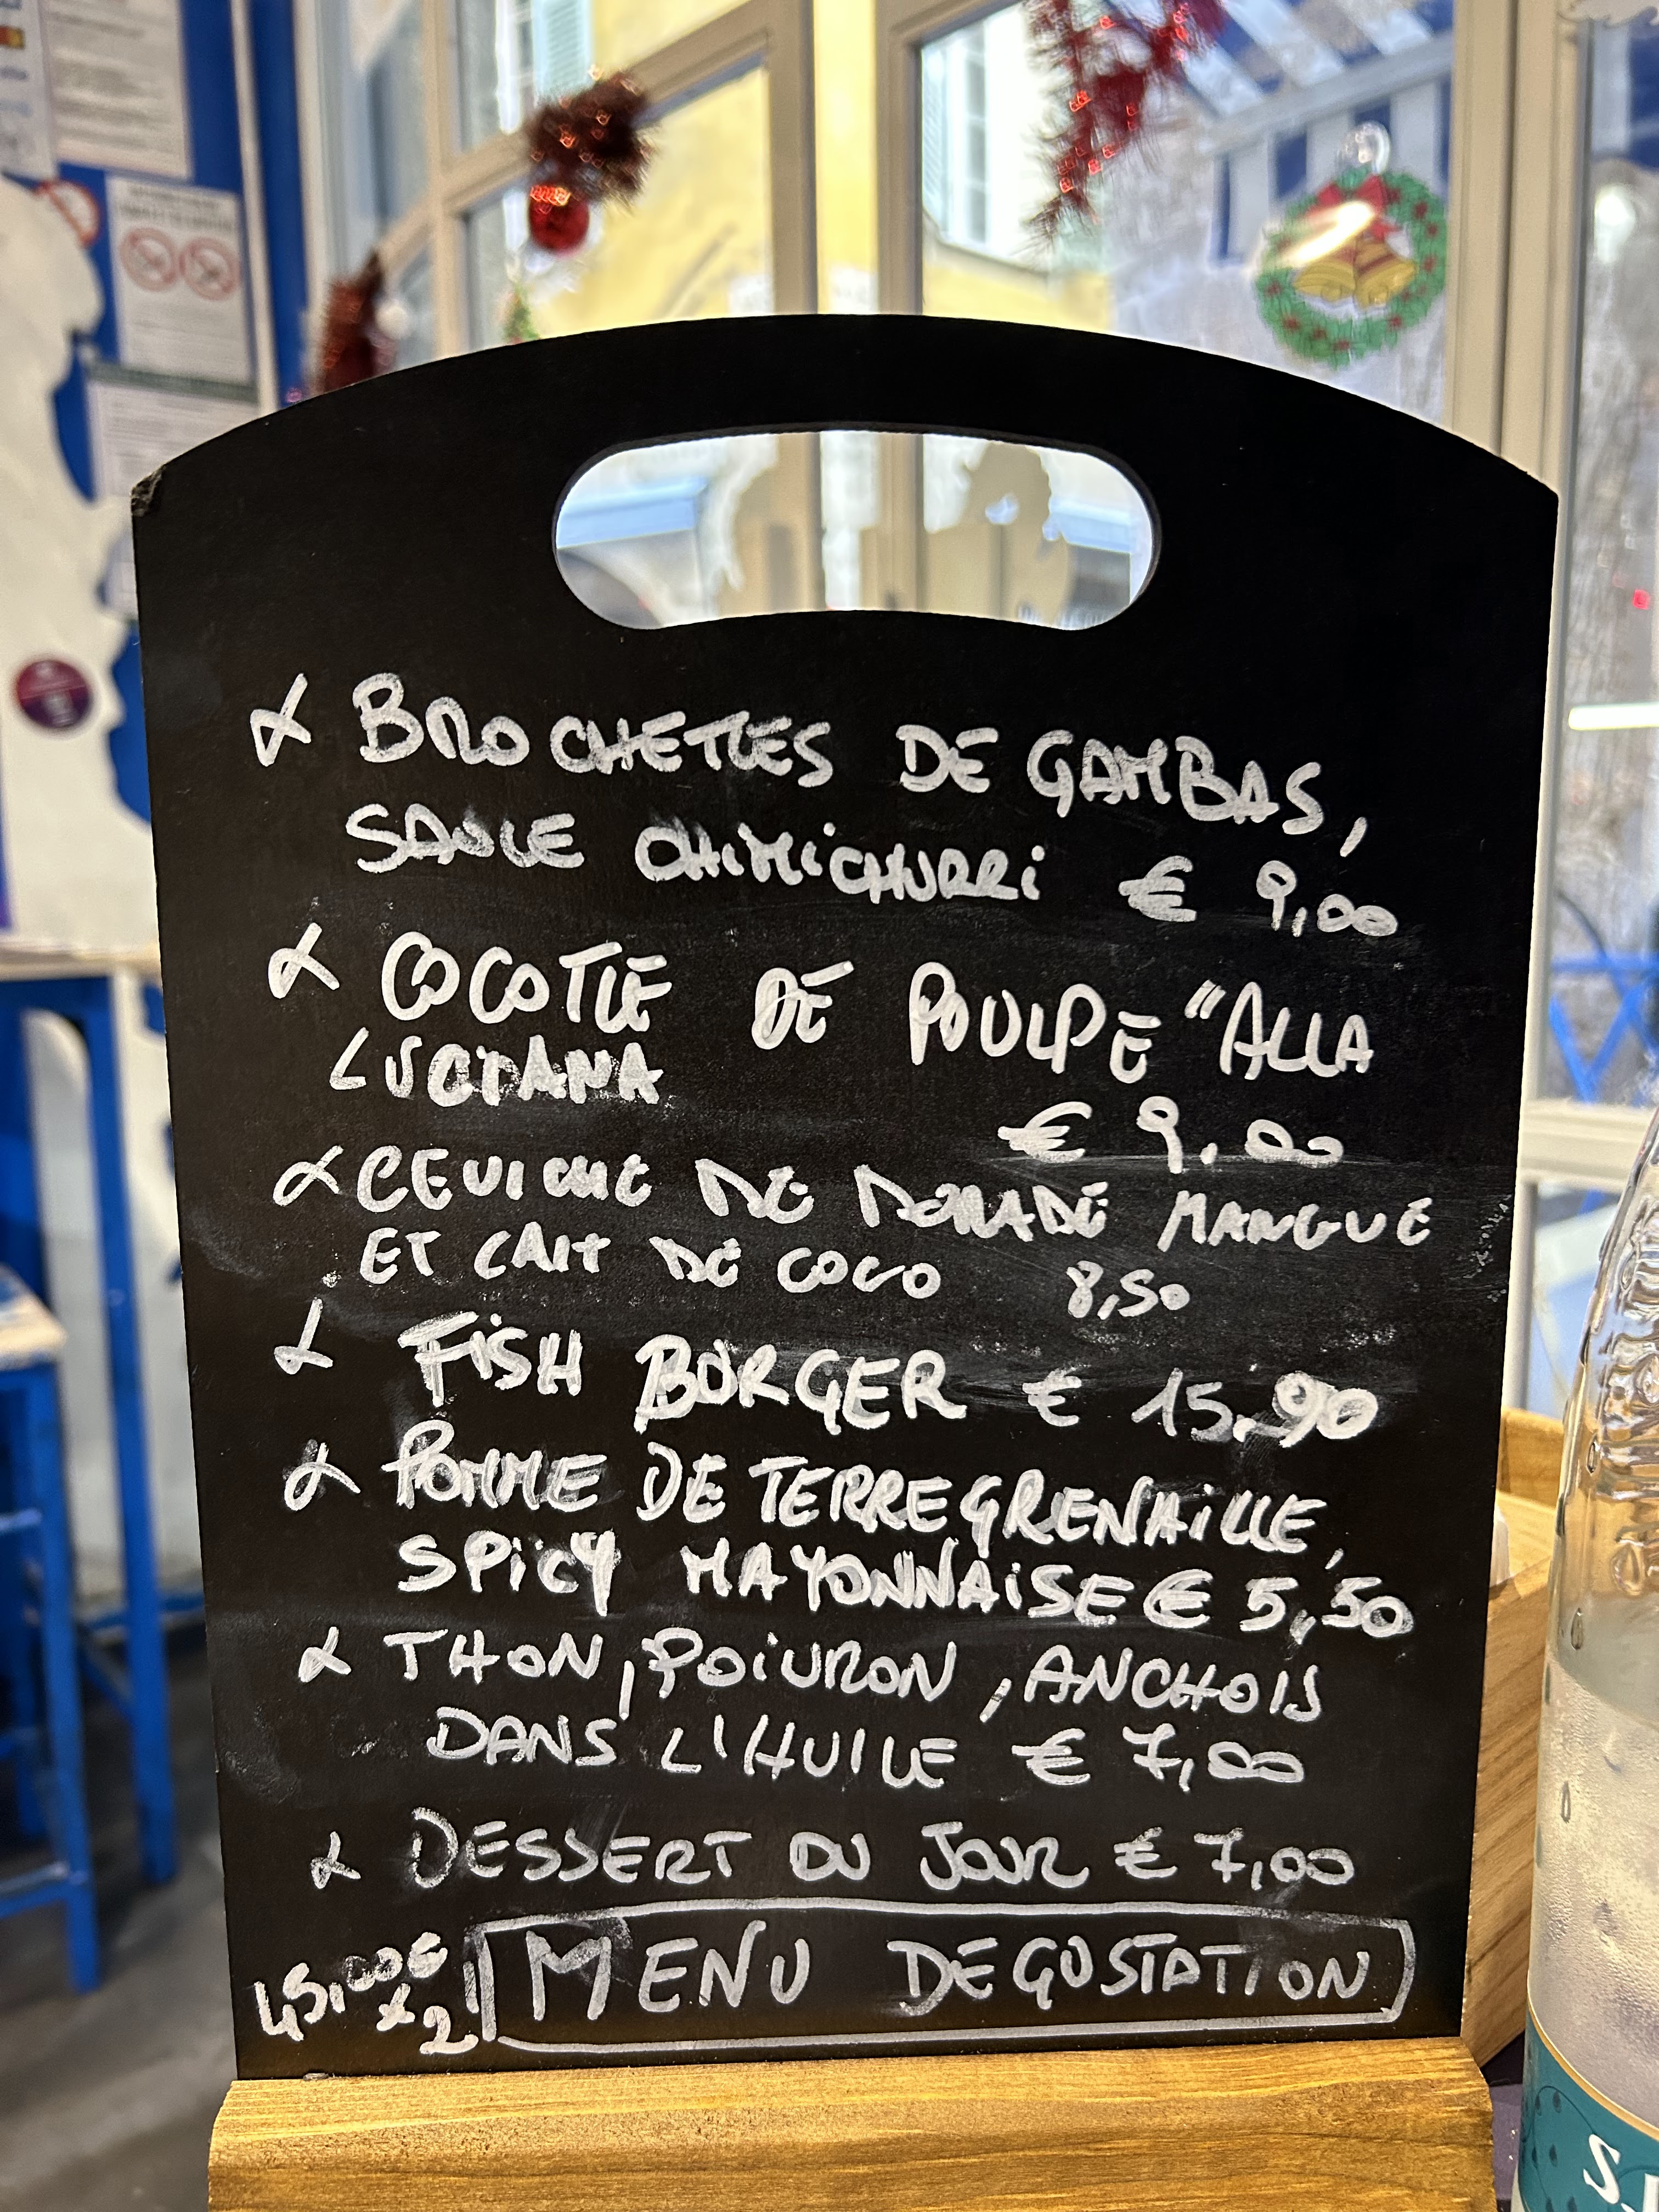 BROCHETTES DE GAMBAS,
SAUCE CHIMICHURRI € 9,00
COCOTTE DE POULPE "ALLA
LUCIANA
€ 9,00
CEVICHE DE DORADE MANGUE
ET LAIT DE COCO 8,50
FISH BURGER € 15,90
POMME DE TERRE GRENAILLE,
SPICY MAYONNAISE € 5,50
THON, POIVRON, ANCHOIS
DANS L'HUILE € 7,00
DESSERT DU JOUR € 7,00
45,00€
x2
MENU DEGUSTATION